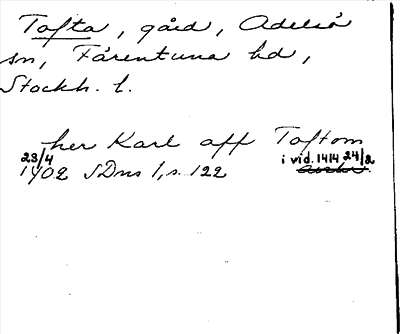 Tofta, gård, Adelsö
sn, Färentuna hd,
Stockh. l.
her Karl aff Toftom
23/4 i vid. 1414 24/2
1402 SDns 1, s. 122